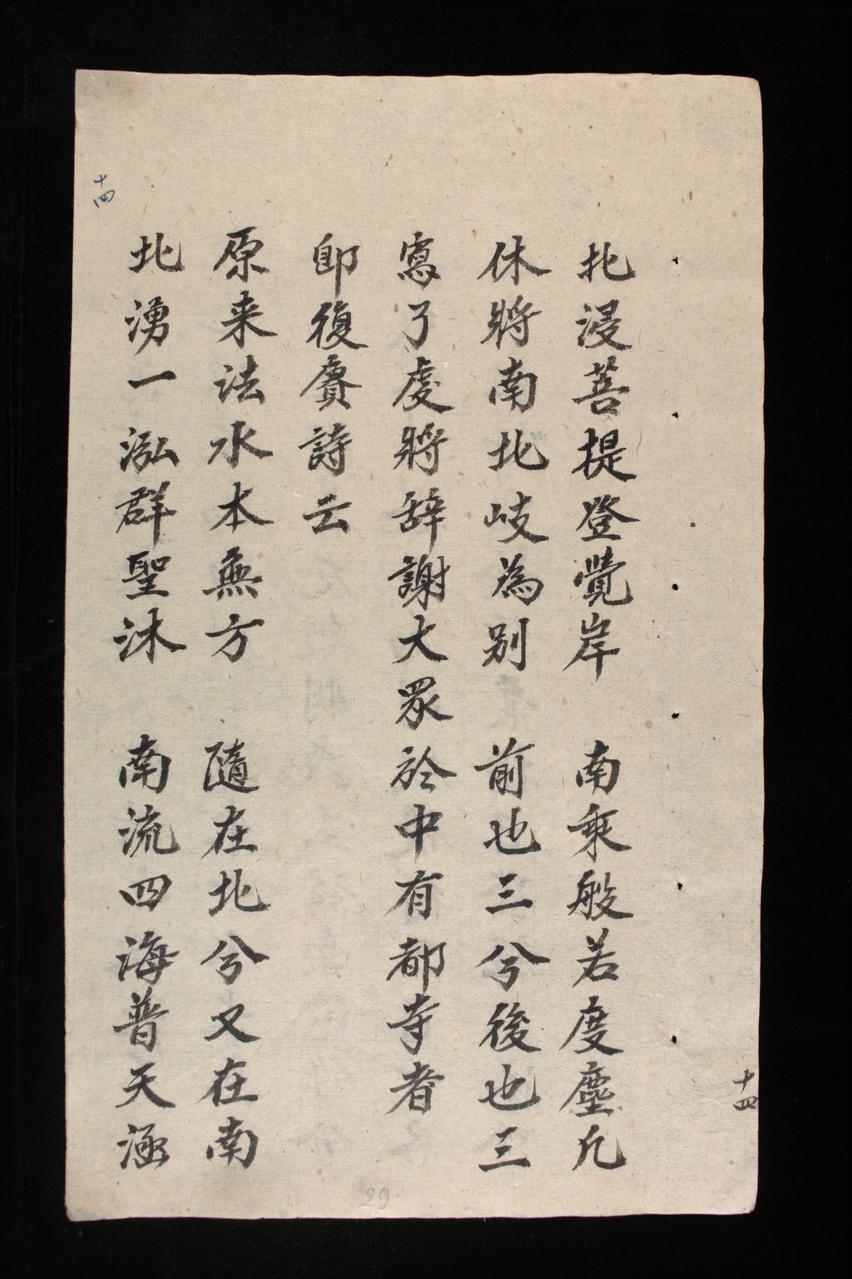 北浸菩提登覺岸　南乘般若度塵凡
休將南北岐為別　前也三兮後也三
寫了處將辞謝大眾於中有都寺者
即復賡詩云
原来法水本無方　隨在北兮又在南
北湧一泓群聖沐　南流四海普天涵
十四
十四
29